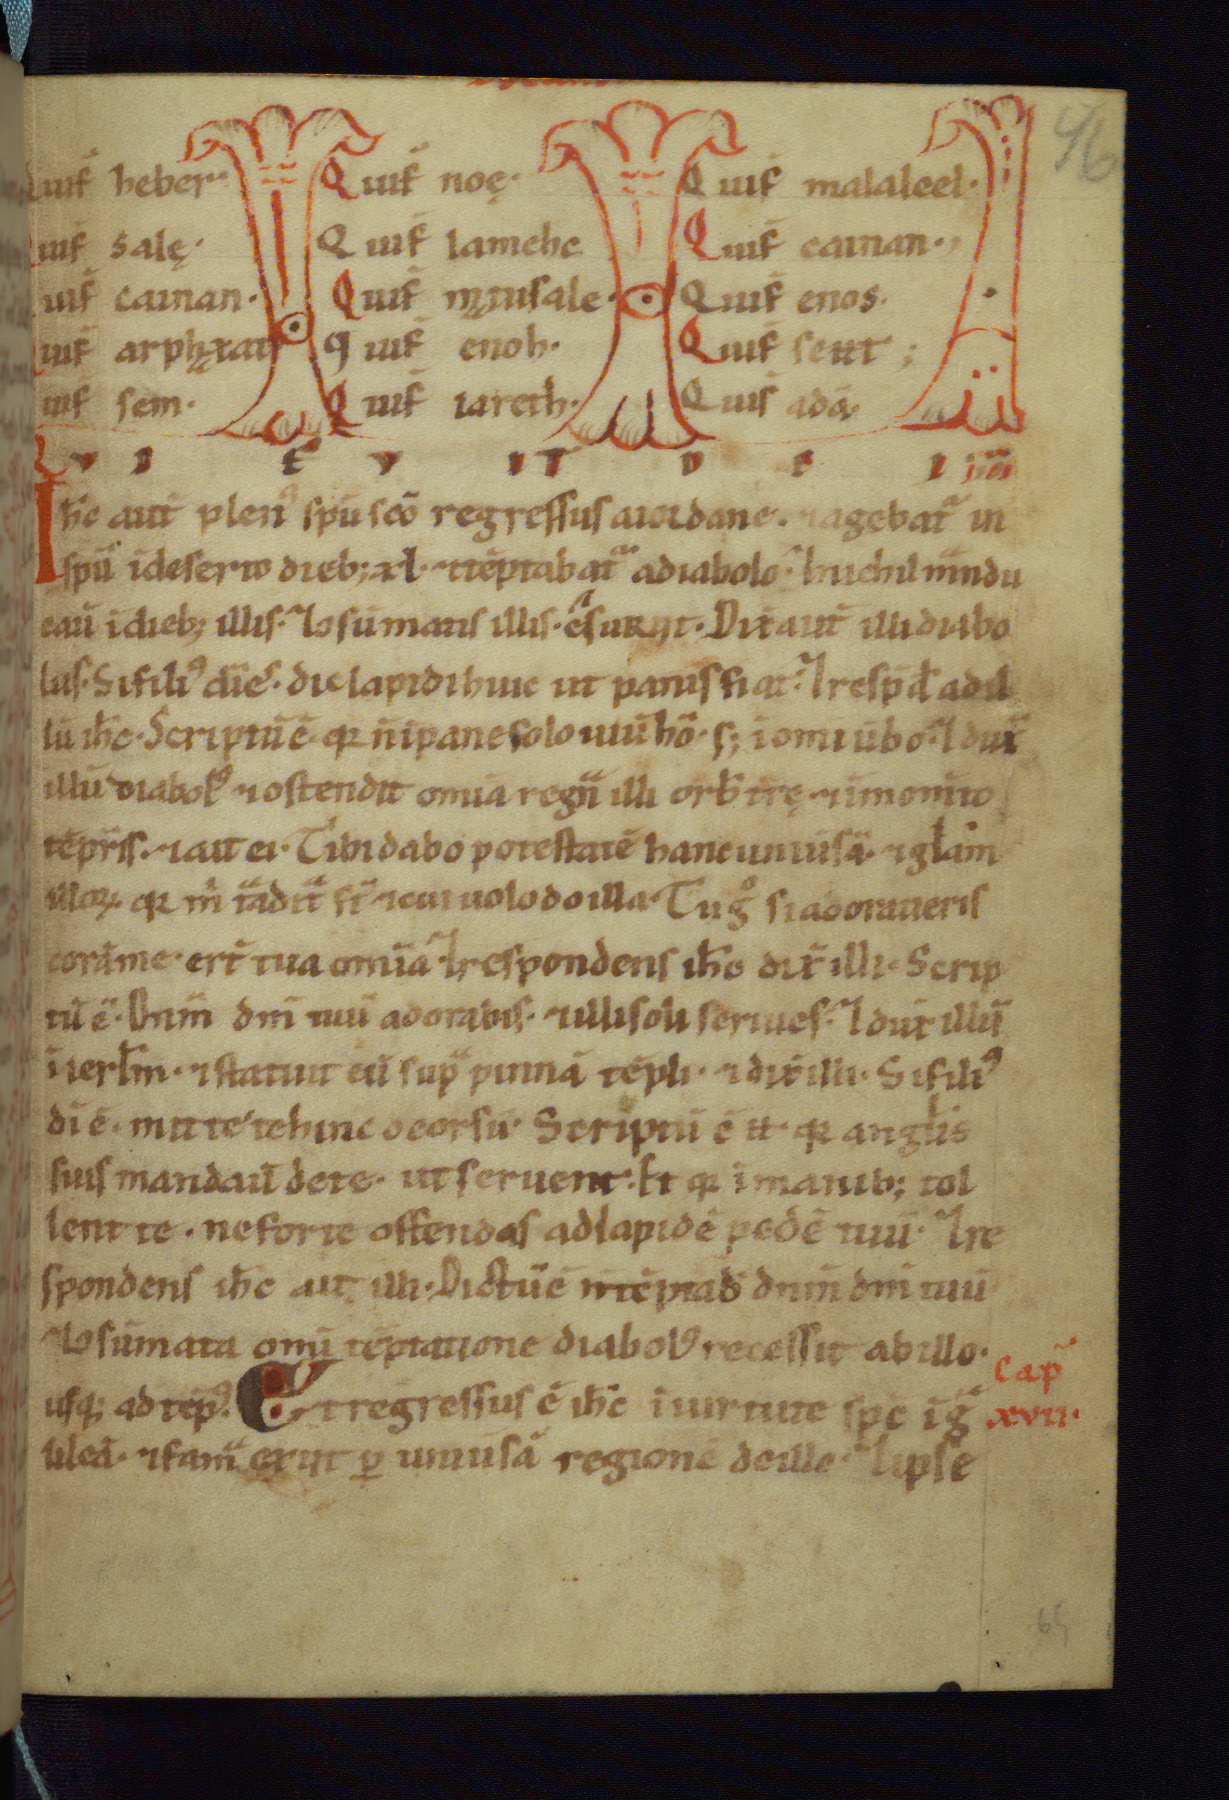 46
Quif heber· Quif noę· Quif malaleel·
Quif salę· Quif lamehc Quif cainan·
Quif cainan· Quif mꝫusale· Quif enos·
Quif arphꝫat Quif enoh· Quif seut;
Quif sem· Quif iareth· Quis adā·
V I F V I T D E I
Ihc̄ aut̄ plenꝰ spū scō regressus aiordane· ⁊agebat̄ in
spū īdeserto dieb; xl· ⁊tēptabat̄ adiabolo·
cau īdieb; illis·⁊ ꝯsūmatis illis· esuriit· Dix̄ aut̄ illi diabo
lus· Si filiꝰ di es· dic lapidi huic ut panis fiat·⁊ resp̄d ad il
lū ihc̄· Scriptū ē· qꝛ n̄ ī pane solo uiu hō· s; ī omi ūbo·⁊ dux̄
illū diabolꝰ ⁊ostendit omia regn̄ illi orb̄ trę ⁊īmomto
tēpris· ⁊ait ei· Tibi dabo potestatē hanc uniūsā· ⁊gl̄am
illoꝝ· qꝛ m̄ tādit̄ st̄ ⁊cui uolo do illa· Tu gͦ si adoraueris
corā me· ert̄ tua omīa·⁊ respondens ihc̄ dix̄ illi· Scrip
tū ē· Dnm̄ dm̄ tuū adorabis· ⁊illi soli seruies·⁊ dux̄ illū
ī ierl̄m· ⁊statuit eū sup̄ pinnā tēpli· ⁊dix̄ illi· Si filiꝰ
di ē· mitte te hinc deorsū· Scriptū ē ·qꝛ angl̄is
suis mandau̅ de te· ut seruent· Et qꝛ ī manib; tol
lent te· ne forte offendas ad lapidē pedē tuū·⁊ re
spondens ihc̄ ait illi· Dictū ē n̄ tēptab̄ dnm̄ dm̄ tuū
⁊ ꝯsūmata omī tēptatione diabolꝰ recessit ab illo·
usq; ad tēpꝰ· Et regressus ē ihc̄ ī uirtute spc ī ga
lileā· ⁊fam̄ exiit ꝑ uniūsā regionē de illo·⁊ ipse
Cap̄
xvii·
65